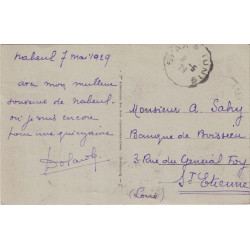 Nabeul 7 mai 1929
avec mon meilleur
souvenir de Nabeul
où je suis encore
pour une quinzaine
Monsieur A Sahy
Banque de Boissieu
3 Rue du General Foy
St Etienne
(Loire)